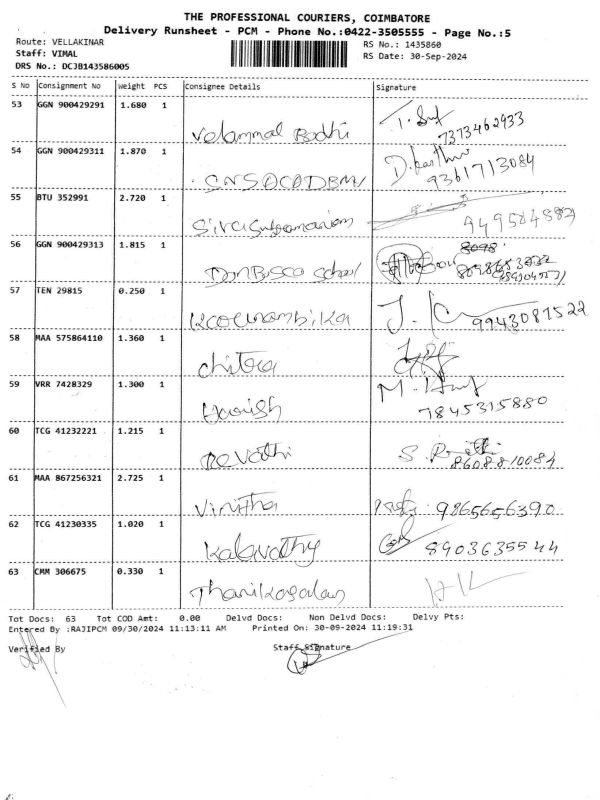 THE PROFESSIONAL COURIERS, COIMBATORE
Delivery Runsheet - PCM - Phone No.:0422-3505555 - Page No.:5
Route: VELLAKINAR RS No.: 1435860
Staff: VIMAL RS Date: 30-Sep-2024
DRS No.: DCJB143586005
S No Consignment No Weight PCS Consignee Details Signature
53 GGN 900429291 1.680 1 Velammal Bodhi 7373462933
54 GGN 900429311 1.870 1 9361713084
55 BTU 352991 2.720 1 Sivasubramaniam 949584882
56 GGN 900429313 1.815 1 Don Bosco School
57 TEN 29815 0.250 1 9943087522
58 MAA 575864110 1.360 1 chitra
59 VRR 7428329 1.300 1 Harish 7845315880
60 TCG 41232221 1.215 1 Revathi 8608810084
61 MAA 867256321 2.725 1 Vinitha 9865656390
62 TCG 41230335 1.020 1 Kalavathy 8903635544
63 CMM 306675 0.330 1
Tot Docs: 63 Tot COD Amt: 0.00 Delvd Docs: Non Delvd Docs: Delvy Pts:
Entered By :RAJIPCM 09/30/2024 11:13:11 AM Printed On: 30-09-2024 11:19:31
Verified By Staff Signature